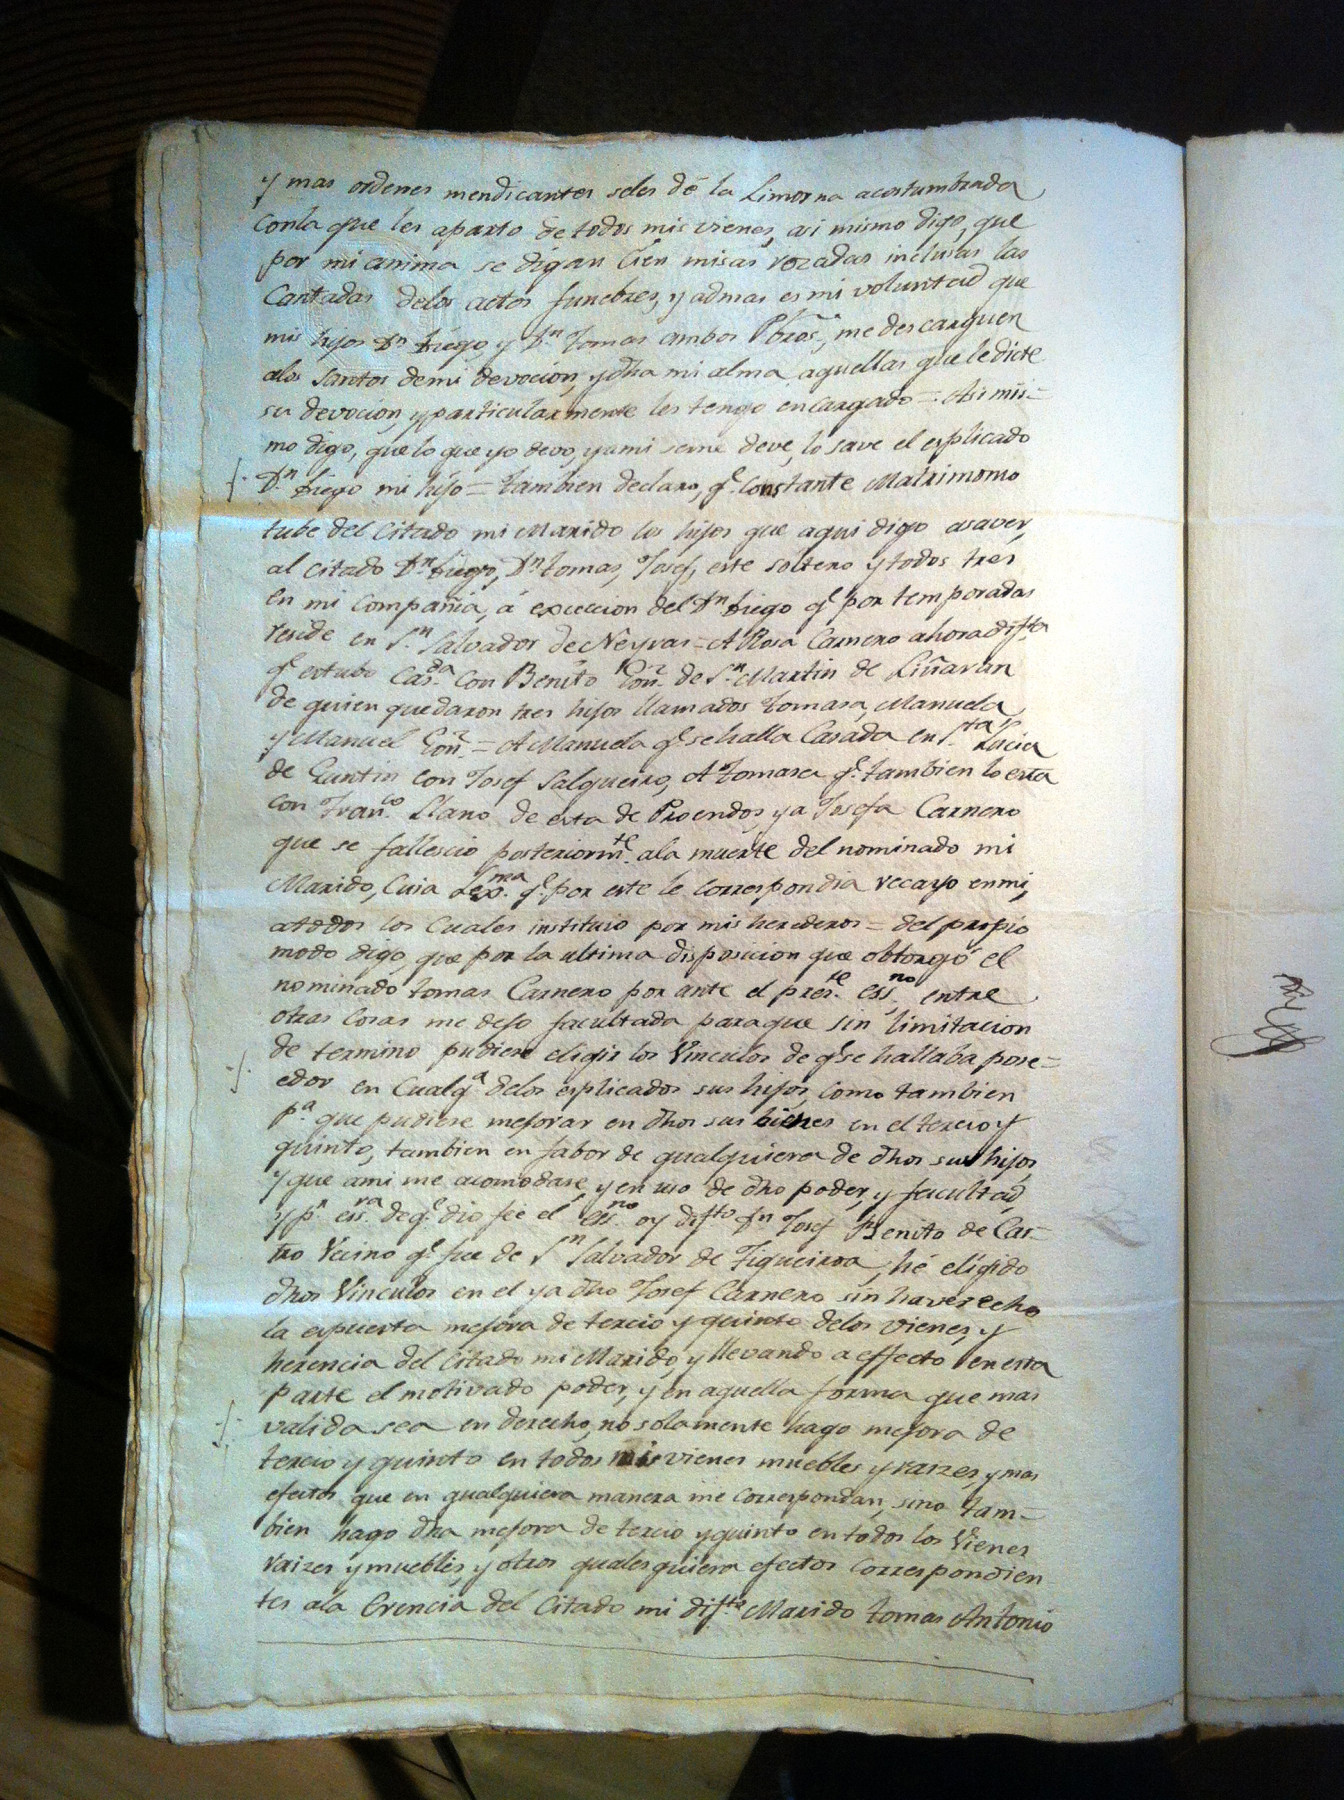 y mas ordenes mendicantes seles dé la Limosna acostumbrada
Conla que les aparto de todos mis vienes, asi mismo digo, que
por mi anima se digan Cien misas rezadas inclusas las
Cantadas delos actos funebres, y admas es mi voluntad que
mis hijos Dn Diego, y Dn Tomas ambos Pbros, me descarguen
alos santos demi devocion, y dha mi alma aquellas que ledicte
su devocion, y particularmente les tengo encargado = Asi mis=
mo digo, que lo que yo devo, yami seme deve, lo save el esplicado
Dn Diego mi hijo = tambien declaro, q.e Constante Matrimonio
tube del Citado mi Marido los hijos que aqui digo asaver,
al citado Dn Diego, Dn tomas, Josef, este soltero y todos tres
en mi Compañia, á excecion del Dn Diego q.e por temporadas
reside en S.n Salvador de Neyras = A Rosa Carnero ahora difta
q.e estubo Cas.da Con Benito de S.n Martin de Liñaran
de quien quedaron tres hijos llamados tomasa, Manuela
y Manuel = A Manuela q.e se halla Casada en S.ta Lucia
de Guntin con Josef Salgueiro, A tomasa q.e tambien lo esta
con Fran.co Llano de esta de Proendos, ya Josefa Carnero
que se fallescio posteriorm.te ala muerte del nominado mi
Marido, Cuia lexma. q.e por este le Correspondia recayo enmi,
atodos los Cuales instituio por mis herederos = del propio
modo digo, que por la ultima disposicion que obtorgó el
nominado tomas Carnero por ante el pres.te ess.no entre
otras Cosas me dejo facultada paraque sin limitacion
de termino pudiese eligir los Vinculos de q.e se hallaba pose=
edor en Cualq.a delos esplicados sus hijos, como tambien
p.a que pudiese mejorar en dhos sus bienes en el tercio y
quinto, tambien en fabor de qualquiera de dhos sus hijos,
y que ami me acomodase, y en uso de dho poder, y facultad,
y p.r ess.ra de q.e dio fee el ess.no oy difto Dn Josef Benito de Cas=
tro Vecino q.e fue de S.n Salvador de Figueiroa, hé eligido
dhos Vinculos en el ya dho Josef Carnero sin haver echo
la espuesta mejora de tercio y quinto delos vienes, y
herencia del Citado mi Marido, y llevando a effecto en esta
parte el motivado poder, y en aquella forma que mas
valida sea en derecho, no solamente hago mejora de
tercio y quinto en todos mis vienes muebles y raizes, y mas
efectos que en qualquiera manera me Correspondan, sino tam=
bien hago dha mejora de tercio y quinto en todos los Vienes
raizes y muebles, y otros qualesquiera efectos Correspondien
tes ala Erencia del Citado mi difto Marido tomas Antonio